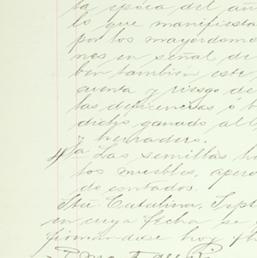 la época del añ
lo que manifiesta
por los mayordomo
nes en señal de
ben tambien este
cuenta y riesgo de
las deficiencias ó b
dicho ganado al l
y herradero.
4a Las semillas h
los muebles, apero
do contados.
Sta Catalina, Sept
en cuya fecha se
firmandose hoy